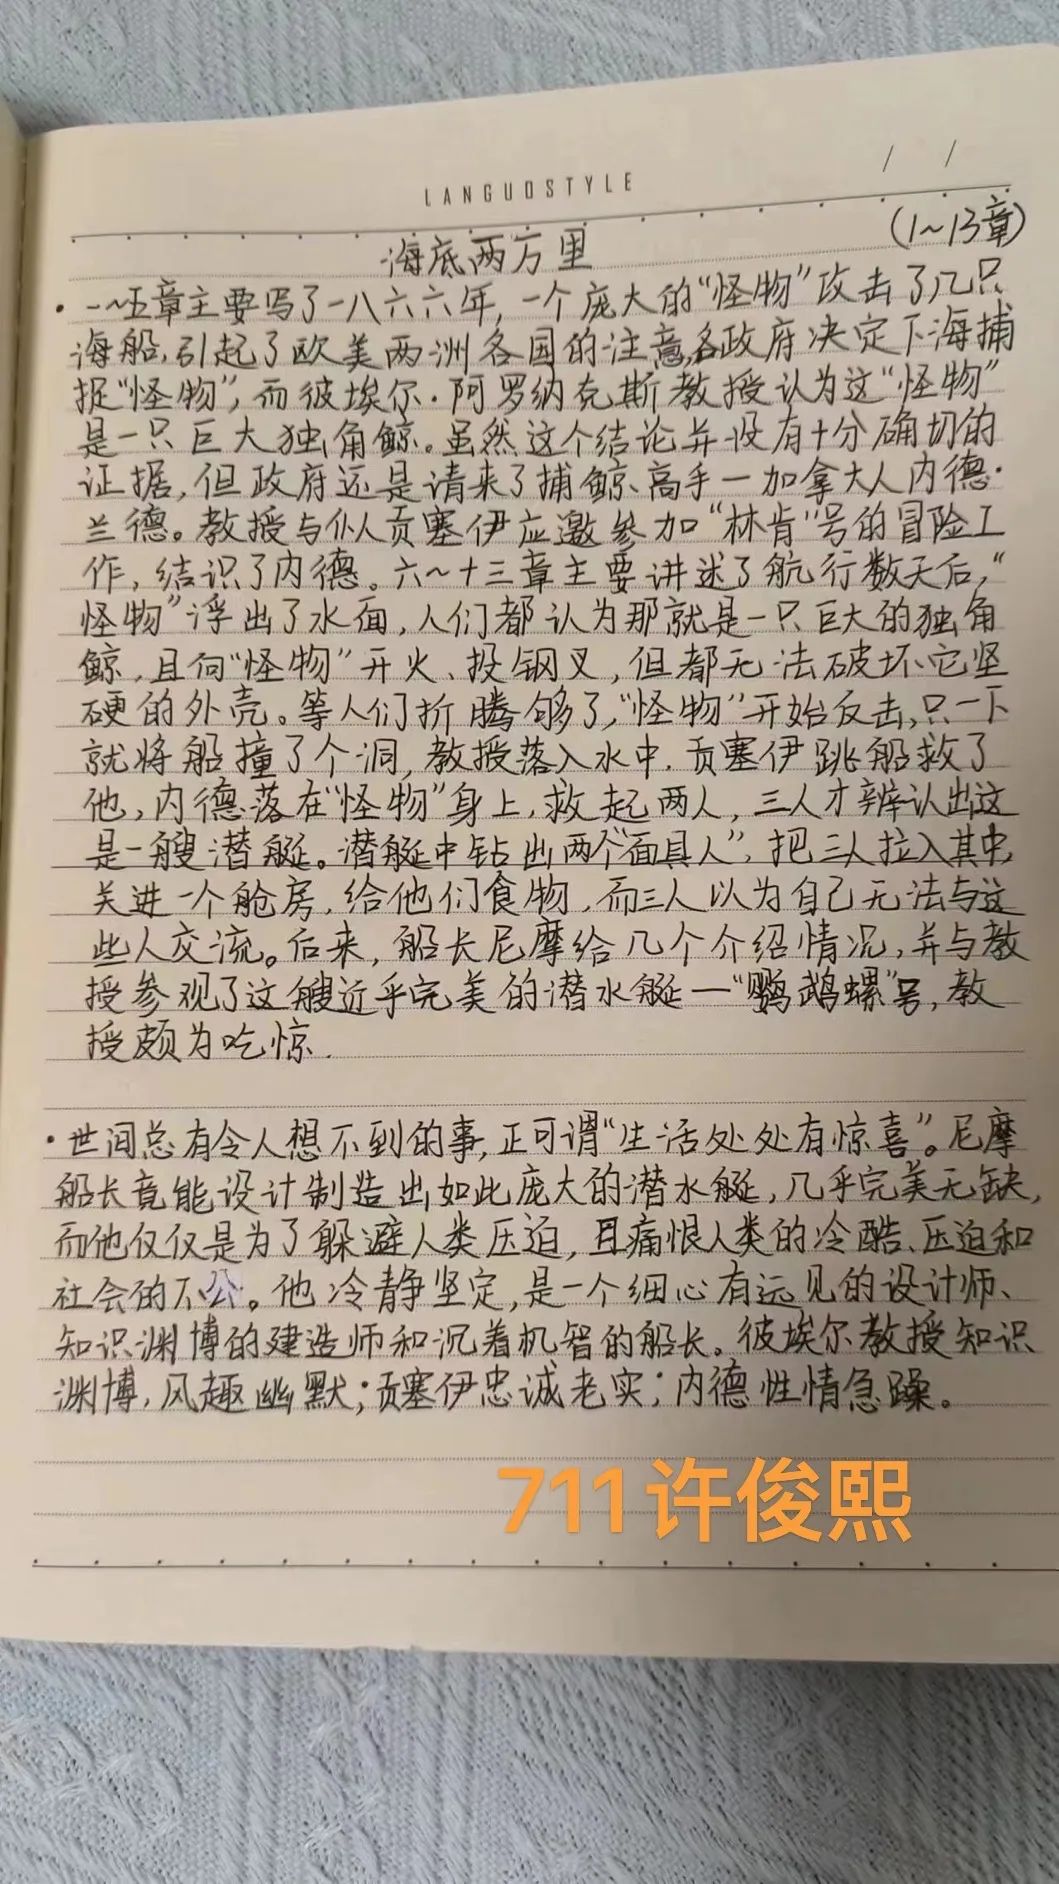 / /
LANGUOSTYLE
海底两万里
(1~13章)
·一~五章主要写了一八六六年,一个庞大的“怪物”攻击了几只
海船,引起了欧美两洲各国的注意,各政府决定下海捕
捉“怪物”,而彼埃尔·阿罗纳克斯教授认为这“怪物”
是一只巨大独角鲸。虽然这个结论并没有十分确切的
证据,但政府还是请来了捕鲸高手—加拿大人内德·
兰德。教授与仆人贡塞伊应邀参加“林肯”号的冒险工
作,结识了内德。六~十三章主要讲述了航行数天后,“
怪物”浮出了水面,人们都认为那就是一只巨大的独角
鲸,且向“怪物”开火、投钢叉,但都无法破坏它坚
硬的外壳。等人们折腾够了,“怪物”开始反击,只一下
就将船撞了个洞,教授落入水中.贡塞伊跳船救了
他,内德落在“怪物”身上,救起两人,三人才辨认出这
是一艘潜艇。潜艇中钻出两个“面具人”,把三人拉入其中,
关进一个舱房,给他们食物,而三人以为自己无法与这
些人交流。后来,船长尼摩给几个介绍情况,并与教
授参观了这艘近乎完美的潜水艇—“鹦鹉螺”号,教
授颇为吃惊.
·世间总有令人想不到的事,正可谓“生活处处有惊喜”。尼摩
船长竟能设计制造出如此庞大的潜水艇,几乎完美无缺,
而他仅仅是为了躲避人类压迫,且痛恨人类的冷酷、压迫和
社会的不公。他冷静坚定,是一个细心有远见的设计师、
知识渊博的建造师和沉着机智的船长。彼埃尔教授知识
渊博,风趣幽默;贡塞伊忠诚老实;内德性情急躁。
711许俊熙